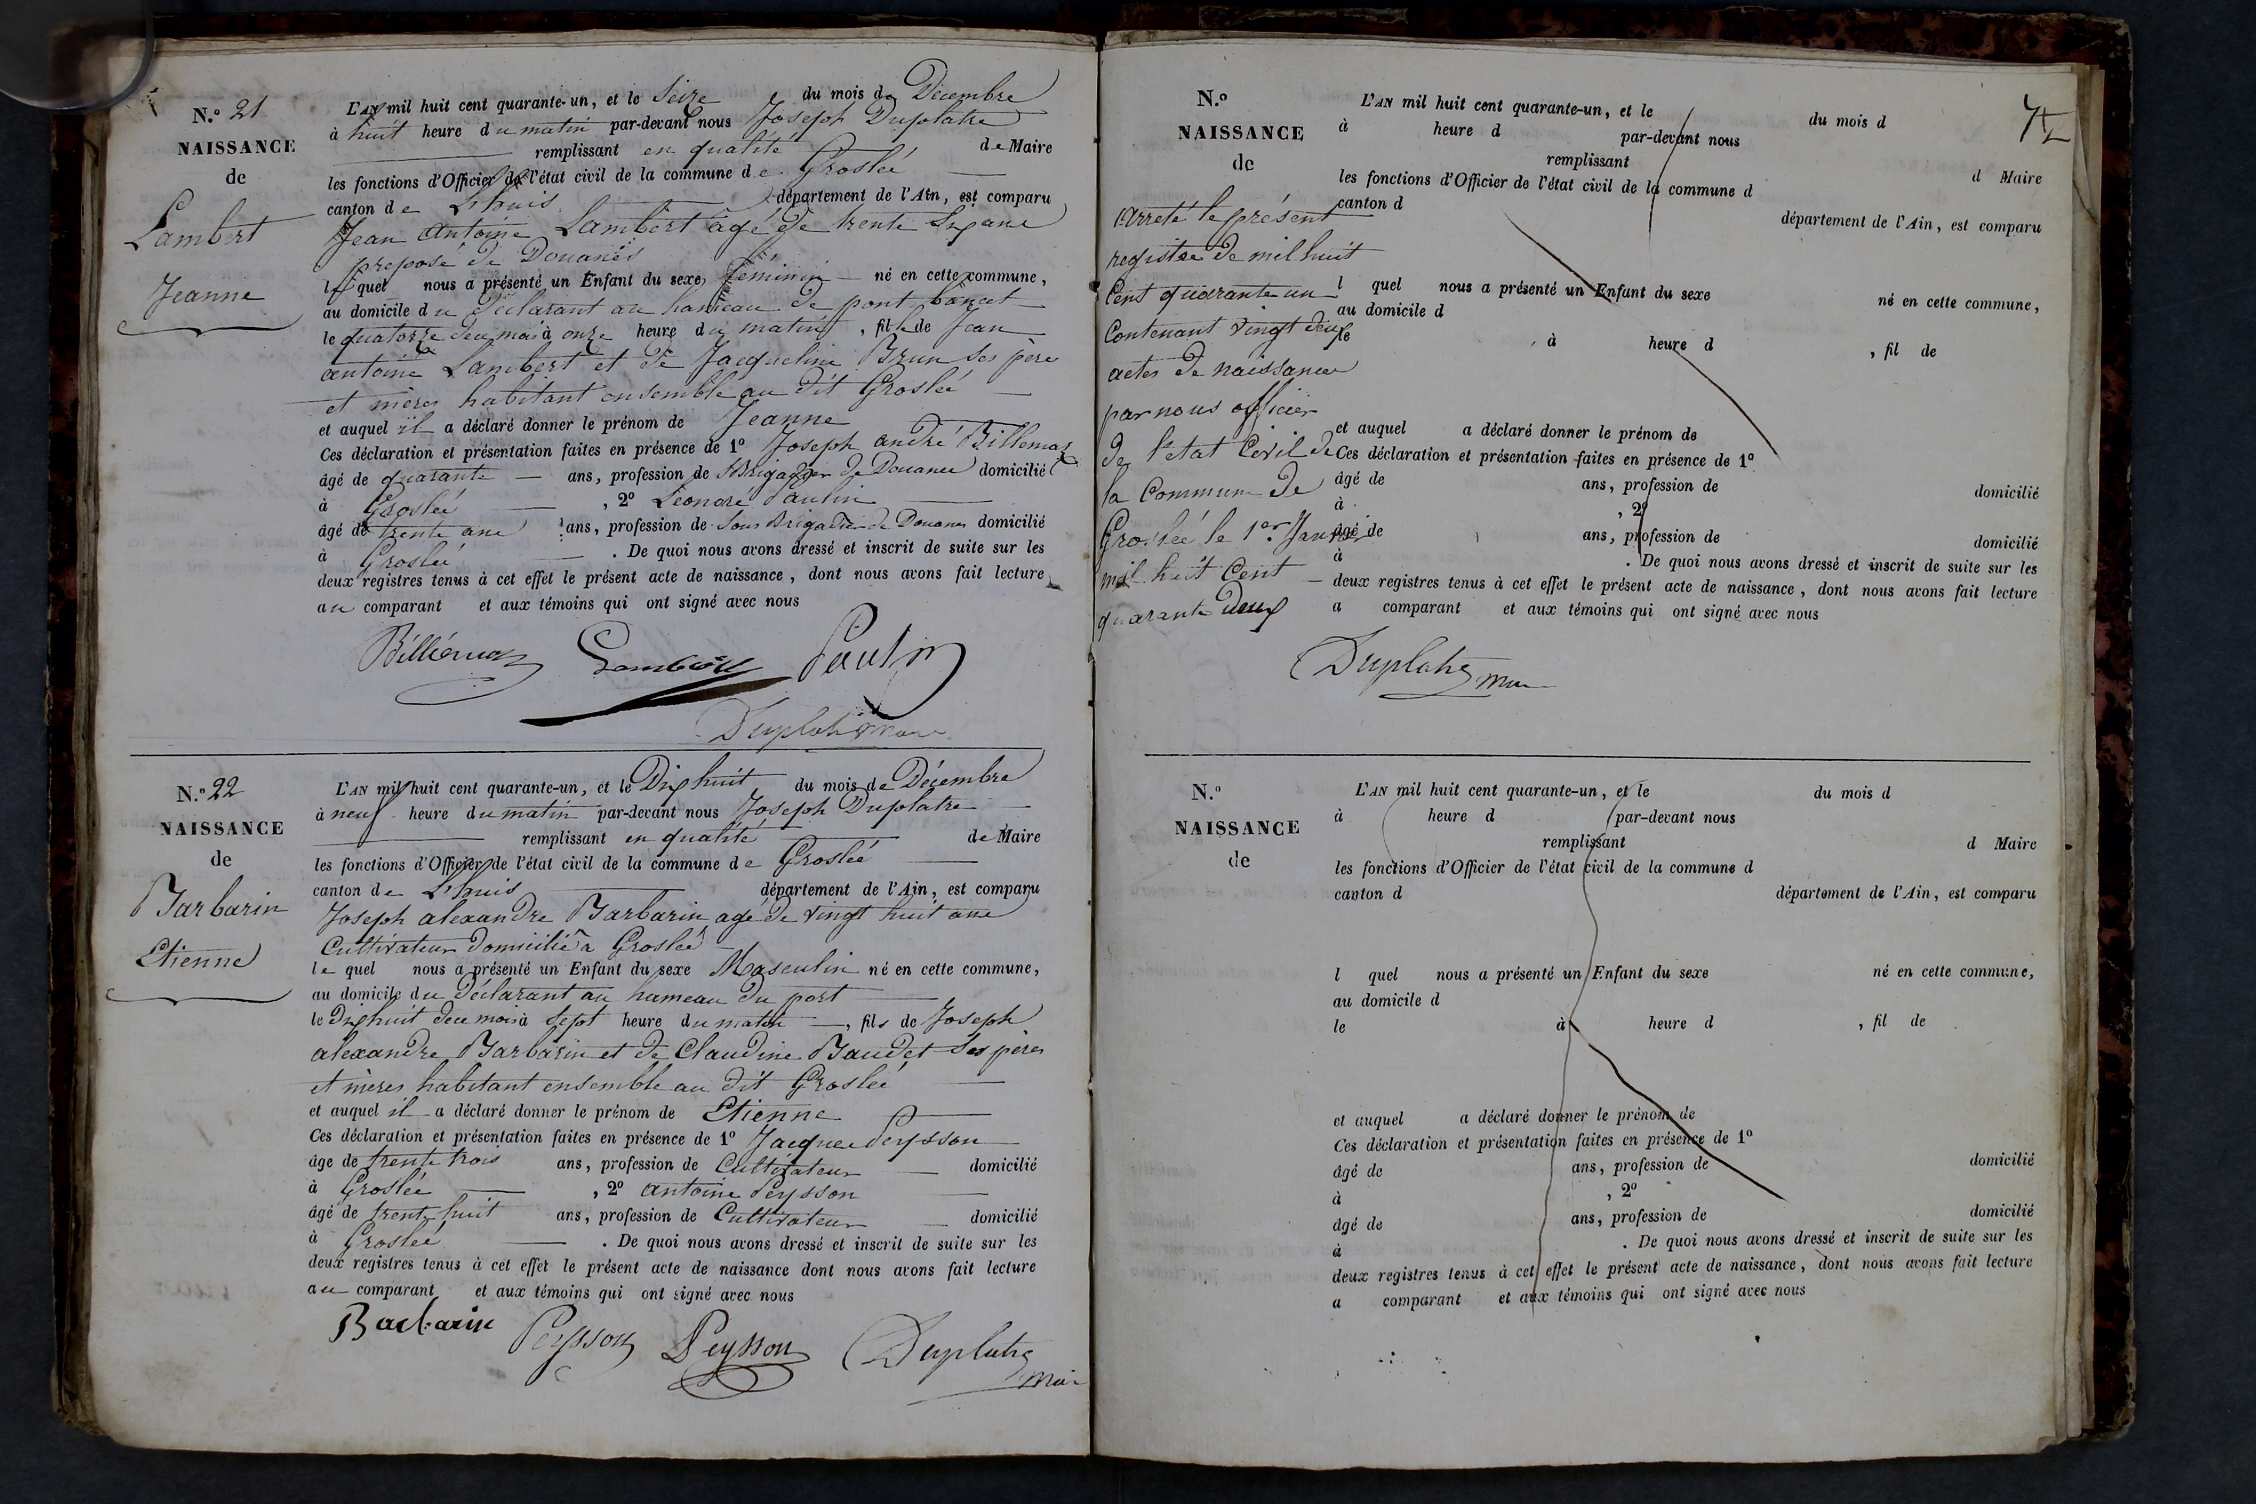 N.º 21
NAISSANCE
de
Lambert
Jeanne
L'AN mil huit cent quarante-un, et le Seize du mois de Décembre
à huit heure du matin par-devant nous Joseph Duplatre
remplissant en qualité de Maire
les fonctions d'Officier de l'état civil de la commune de Groslée
canton de Lhuis département de l'Ain, est comparu
Jean Antoine Lambert âgé de trente six ans
préposé de Douanes
lequel nous a présenté un Enfant du sexe féminin né en cette commune,
au domicile du déclarant au hameau de pont bancet
le quatorze du mois à onze heure du matin, fille de Jean
antoine Lambert et de Jacqueline Brun ses père
et mères habitant ensemble au dit Groslée
et auquel il a déclaré donner le prénom de Jeanne
Ces déclaration et présentation faites en présence de 1º Joseph andré Billemaz
âgé de quarante ans, profession de Brigadier de Douanes domicilié
à Groslée, 2º Léonore Paulin
âgé de trente ans ans, profession de Sous Brigadier de Douanes domicilié
à Groslée. De quoi nous avons dressé et inscrit de suite sur les
deux registres tenus à cet effet le présent acte de naissance, dont nous avons fait lecture
au comparant et aux témoins qui ont signé avec nous
Billiémaz Lambert Paulin
Duplatre maire
N.º 22
NAISSANCE
de
Barbarin
Etienne
L'AN mil huit cent quarante-un, et le Dix huit du mois de Décembre
à neuf heure du matin par-devant nous Joseph Duplatre
remplissant en qualité de Maire
les fonctions d'Officier de l'état civil de la commune de Groslée
canton de Lhuis département de l'Ain, est comparu
Joseph alexandre Barbarin agé de vingt huit ans
Cultivateur domicilié à Groslée
le quel nous a présenté un Enfant du sexe Masculin né en cette commune,
au domicile du Déclarant au hameau du port
le Dix huit du mois à Sept heure du matin, fils de Joseph
alexandre Barbarin et de Claudine Baudet ses pères
et mères habitant ensemble au dit Groslée
et auquel il a déclaré donner le prénom de Etienne
Ces déclaration et présentation faites en présence de 1º Jacques Peysson
âge de trente trois ans, profession de Cultivateur domicilié
à Groslée, 2º antoine Peysson
âgé de trente huit ans, profession de Cultivateur domicilié
à Groslée. De quoi nous avons dressé et inscrit de suite sur les
deux registres tenus à cet effet le présent acte de naissance dont nous avons fait lecture
au comparant et aux témoins qui ont signé avec nous
Barbarin Peysson Peysson Duplatre
maire
N.º
NAISSANCE
de
arreté le présent
registre de mil huit
Cent quarante un
Contenant vingt deux
actes de naissance
par nous officier
de l'etat Civil de
la Commune de
Groslée le 1er Janvier
mil huit Cent
quarante Deux
L'AN mil huit cent quarante-un, et le du mois d
à heure d par-devant nous
remplissant d Maire
les fonctions d'Officier de l'état civil de la commune d
canton d département de l'Ain, est comparu
l quel nous a présenté un Enfant du sexe né en cette commune,
au domicile d
le à heure d, fil de
et auquel a déclaré donner le prénom de
Ces déclaration et présentation faites en présence de 1º
âgé de ans, profession de domicilié
à, 2º
âgé de ans, profession de domicilié
à. De quoi nous avons dressé et inscrit de suite sur les
deux registres tenus à cet effet le présent acte de naissance, dont nous avons fait lecture
a comparant et aux témoins qui ont signé avec nous
Duplatre maire
N.º
NAISSANCE
de
L'AN mil huit cent quarante-un, et le du mois d
à heure d par-devant nous
remplissant d Maire
les fonctions d'Officier de l'état civil de la commune d
canton d département de l'Ain, est comparu
l quel nous a présenté un Enfant du sexe né en cette commune,
au domicile d
le à heure d, fil de
et auquel a déclaré donner le prénom de
Ces déclaration et présentation faites en présence de 1º
âgé de ans, profession de domicilié
à, 2º
âgé de ans, profession de domicilié
à. De quoi nous avons dressé et inscrit de suite sur les
deux registres tenus à cet effet le présent acte de naissance, dont nous avons fait lecture
a comparant et aux témoins qui ont signé avec nous